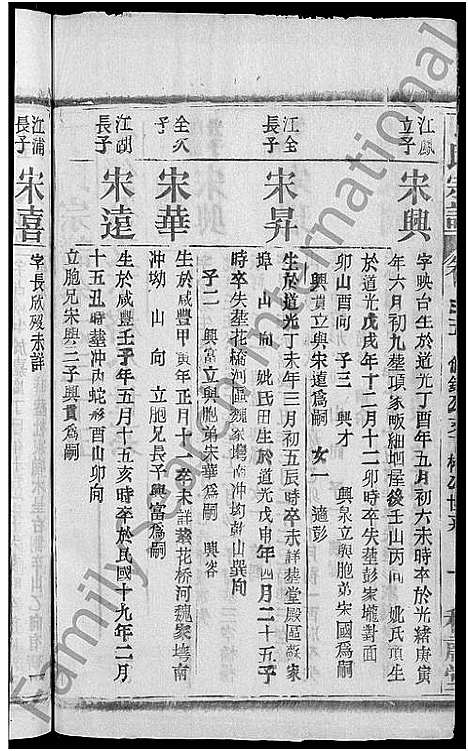 江鳳立子
宋興
字映台生於道光丁酉年五月初六未時卒於光緒庚寅
年六月初九塟項家畈細地屋後壬山丙向 妣氏項生
於道光戊戌年十二月十二卯時卒失塟彭家壠對面
卯山酉向 子三 興才 興泉立與胞弟宋國爲嗣
興貴立與宋遠爲嗣 女一 適彭
江全長子
宋昇
生於道光丁未年三月初五辰時卒未詳塟堂殿區蘇家
埠 山 向 妣氏田生於道光戊申年四月二十五子
時卒失塟花橋河區魏家塆南冲坳乾山巽向
子二 興富立與胞弟宋華爲嗣 興容
全次子
宋華
生於咸豐甲寅年正月十 卒未詳塟花桥河魏家塆南
冲坳 山 向 立胞兄長子興富爲嗣
江湖長子
宋遠
生於咸豐壬子年五月十五亥時卒於民國十九年二月
十五丑時塟冲丙蛇形酉山卯向
立胞兄宋興三子興貴爲嗣
江浦長子
宋喜
字長欣歿未詳
Family Search International